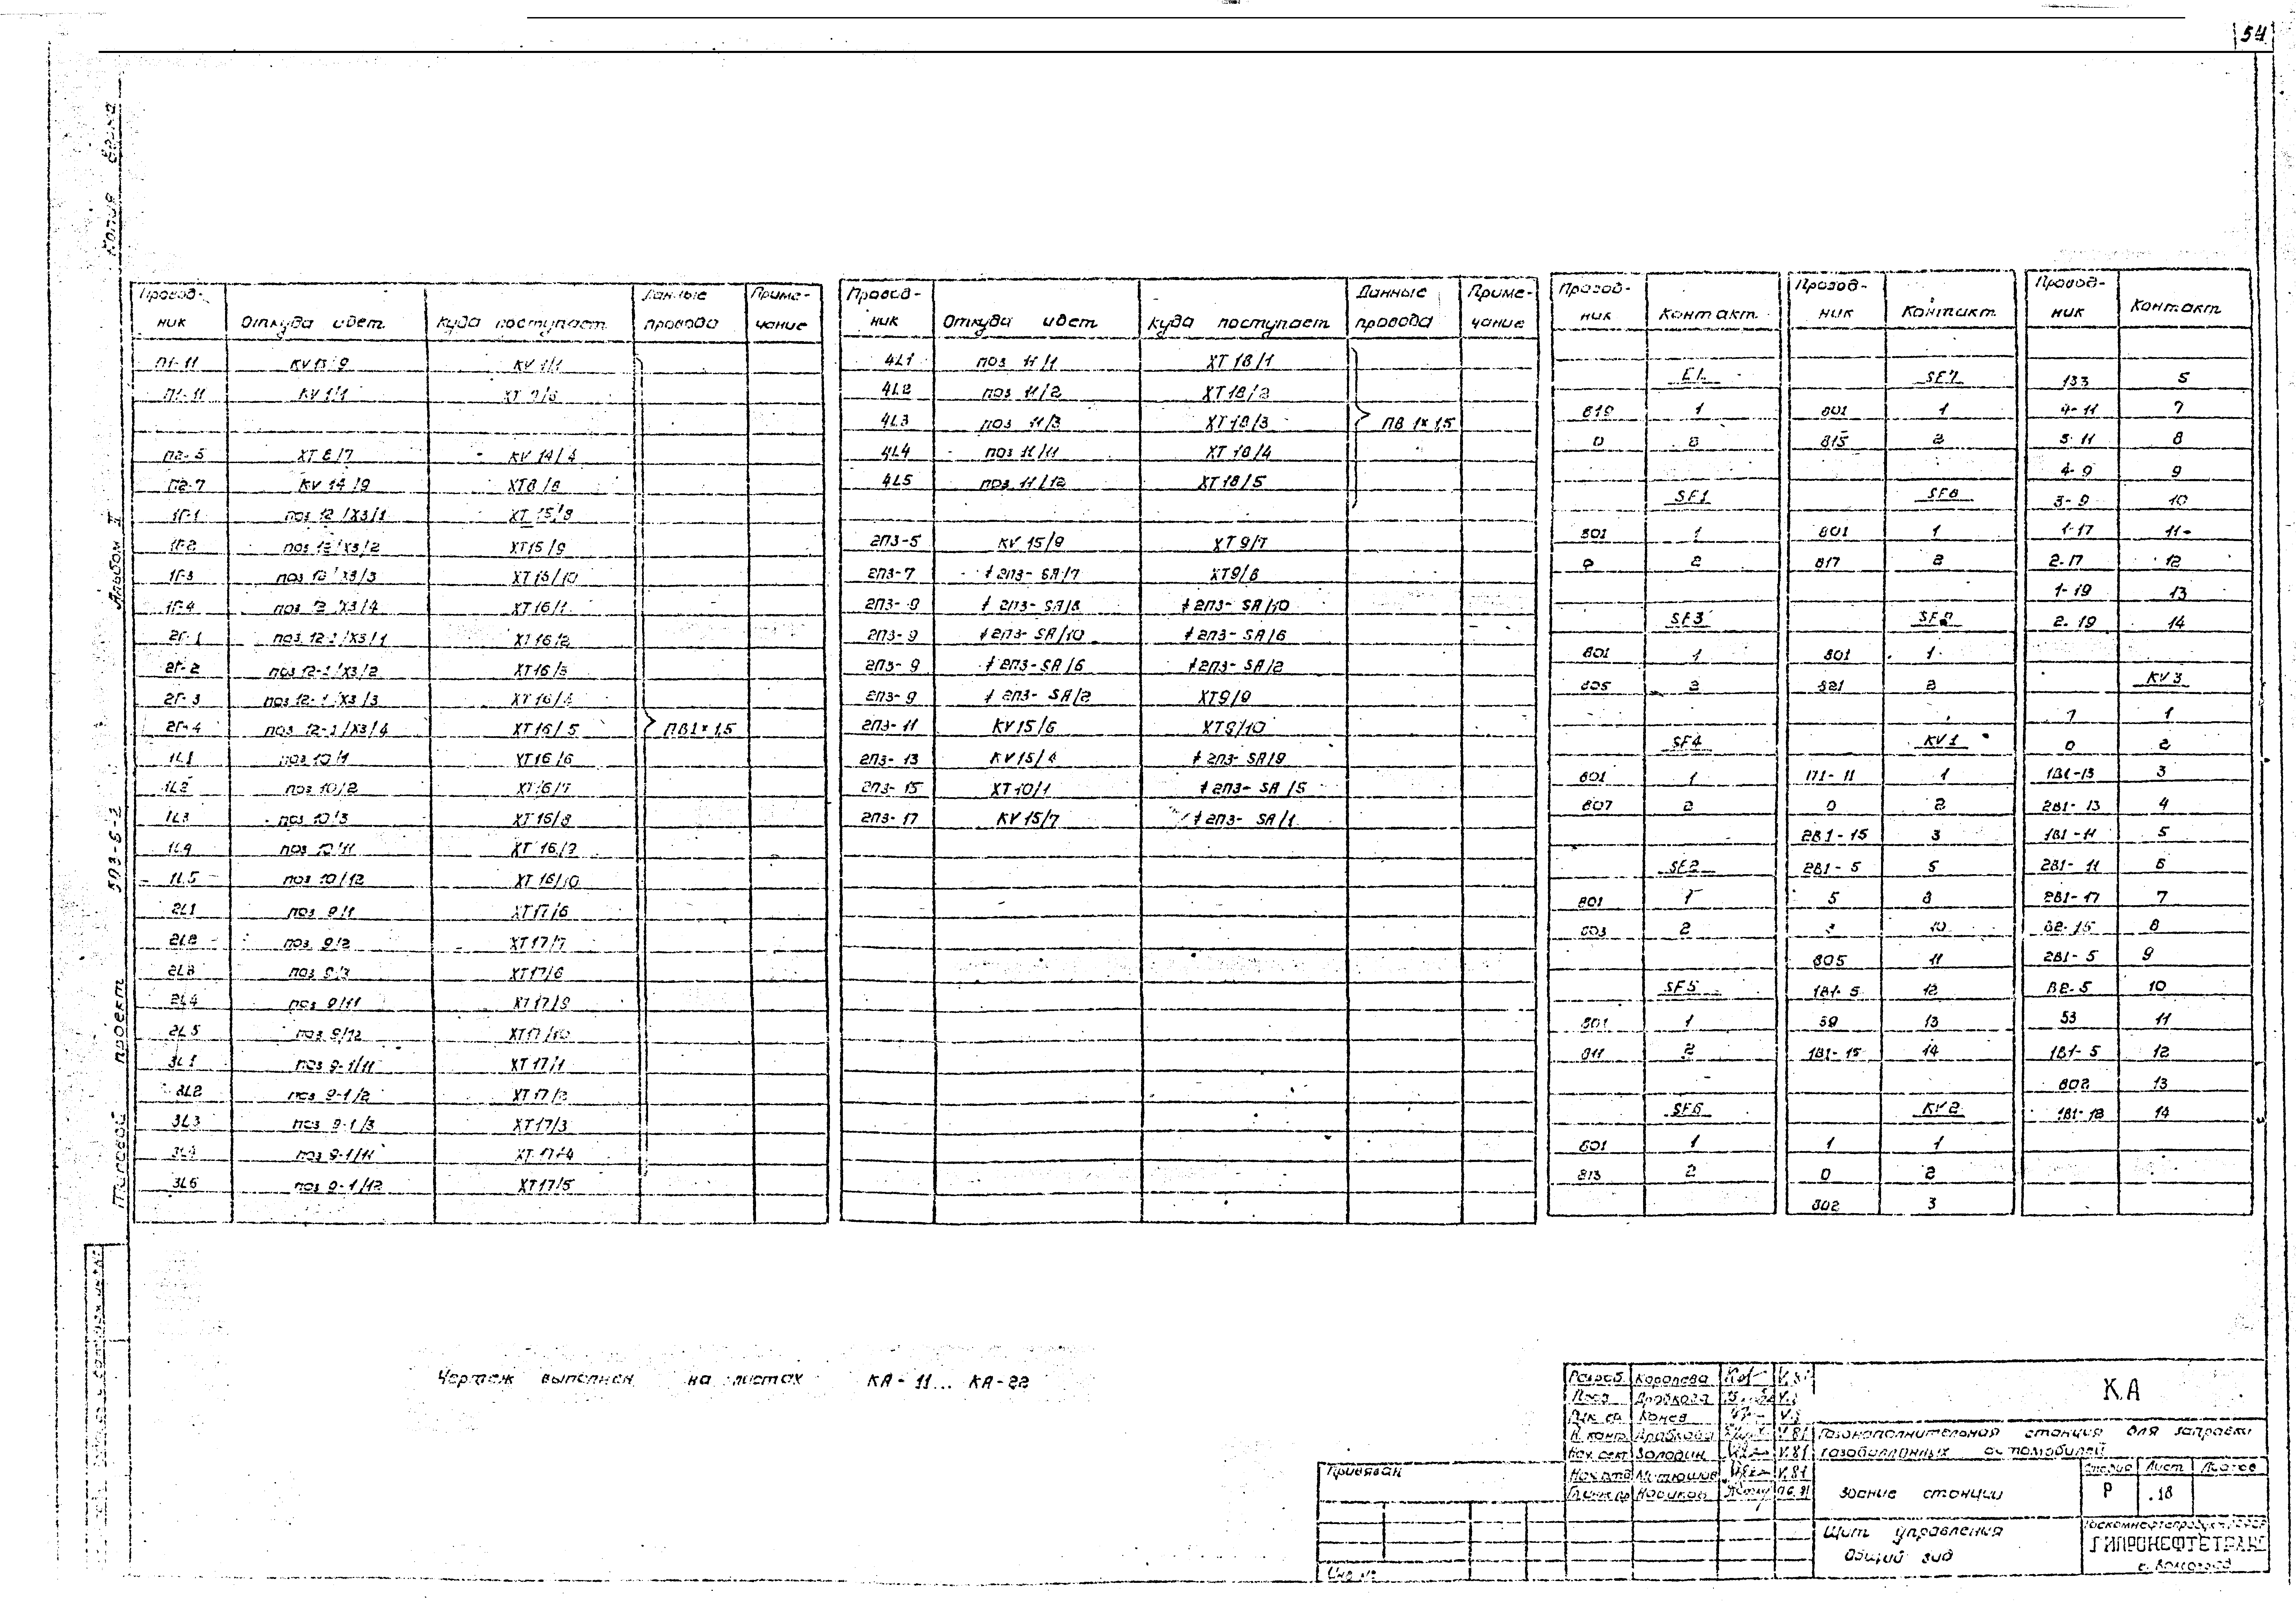 54
Копия
Альбом I
Типовой проект 503-6-2
Провод-ник | Откуда идет | Куда поступает | Данные провода | Приме-чание
П1-11 | KV 1/1
П1-11 | KV 1/1
П2-5 | ХТ 8/7 | KV 14/4
П2-7 | KV 14/9 | ХТ8/8
1Г-1 | поз 12/Х3/1 | ХТ 15/8
1Г-2 | поз 12/Х3/2 | ХТ15/9
1Г-3 | поз 12/Х3/3 | ХТ15/10
1Г-4 | поз 12/Х3/4 | ХТ16/1
2Г-1 | поз 12-1/Х3/1 | ХТ16/2
2Г-2 | поз 12-1/Х3/2 | ХТ16/3
2Г-3 | поз 12-1/Х3/3 | ХТ16/4
2Г-4 | поз 12-1/Х3/4 | ХТ16/5 | ПВ1×1,5
1L1 | поз 10/1 | ХТ16/6
1L2 | поз 10/2 | ХТ16/7
1L3 | поз 10/3 | ХТ16/8
1L4 | поз 10/11 | ХТ 16/9
1L5 | поз 10/12 | ХТ 16/10
2L1 | поз 9/1 | ХТ17/6
2L2 | поз 9/2 | ХТ17/7
2L3 | поз 9/3
2L4 | поз 9/11 | ХТ17/9
2L5 | поз 9/12 | ХТ17/10
3L1 | поз 9-1/11 | ХТ 17/1
3L2 | поз 9-1/2 | ХТ 17/2
3L3 | поз 9-1/3 | ХТ17/3
3L4 | поз 9-1/11 | ХТ 17/4
поз 9-1/12 | ХТ17/5
Провод-ник | Откуда идет | Куда поступает | Данные провода | Приме-чание
4L1 | поз 11/1 | ХТ 18/1
4L2 | поз 11/2 | ХТ18/2
4L3 | поз 11/3 | ХТ18/3 | ПВ 1×1,5
4L4 | поз 11/11 | ХТ 18/4
4L5 | поз 11/12 | ХТ18/5
2П3-5 | KV 15/9 | ХТ9/7
2П3-7 | 2П3-SA/7 | ХТ9/8
2П3-9 | 2П3-SA/10
2П3-9 | 2П3-SA/10 | 2П3-SA/6
2П3-9 | 2П3-SA/6 | 2П3-SA/2
2П3-9 | 2П3-SA/2 | ХТ9/9
2П3-11 | KV15/6 | ХТ9/10
2П3-13 | KV15/4 | 2П3-SA/9
2П3-15 | ХТ10/1 | 2П3-SA/5
2П3-17 | KV15/7 | 2П3-SA/1
Провод-ник | Контакт
EL
819 | 1
0 | 2
SF1
801 | 1
0 | 2
SF3
801 | 1
805 | 2
SF4
801 | 1
807 | 2
SF2
801 | 1
803 | 2
SF5
801 | 1
811 | 2
SF6
801 | 1
813 | 2
Провод-ник | Контакт
SF7
801 | 1
815 | 2
SF8
801 | 1
817 | 2
SF9
801 | 1
821 | 2
KV1
П1-11 | 1
0 | 2
2В1-15 | 3
2В1-5 | 5
5 | 8
10
805 | 11
1В1-5 | 12
59 | 13
1В1-15 | 14
KV2
1 | 1
0 | 2
802 | 3
Провод-ник | Контакт
133 | 5
4-11 | 7
3-11 | 8
4-9 | 9
3-9 | 10
1-17 | 11
2-17 | 12
1-19 | 13
2-19 | 14
KV3
7 | 1
0 | 2
1В1-13 | 3
2В1-13 | 4
1В1-11 | 5
2В1-11 | 6
2В1-17 | 7
В2-15 | 8
2В1-5 | 9
В2-5 | 10
53 | 11
1В1-5 | 12
802 | 13
14
Чертеж выполнен на листах КА-11... КА-22
Разраб. Королева
Дробкова
Конев
Н. контр. Дробкова V.81
Нач. сект. Володин V.81
Нач. отд. V.81
Новиков
Привязан
Инв. №
КА
Газонаполнительная станция для заправки
газобаллонных автомобилей
Здание станции
Стадия | Лист | Листов
Р | 18
Щит управления
Общий вид
Госкомнефтепродукт РСФСР
ГИПРОНЕФТЕТРАНС
г. Волгоград